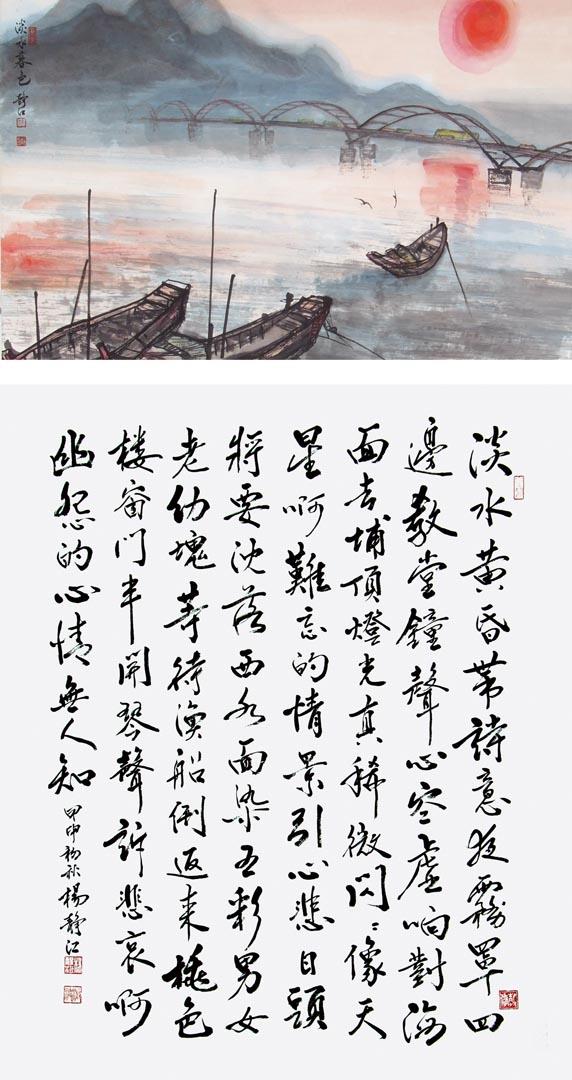 淡水暮色 靜江
淡水黃昏帶詩意夜霧罩四
邊教堂鐘聲心空虛响對海
面去埔頂燈光真稀微閃〻像天
星啊難忘的情景引心悲日頭
將要沈落西水面染五彩男女
老幼塊等待漁船倒返來桃色
楼窗門半開琴聲訴悲哀啊
幽怨的心情無人知
甲申初秋楊靜江